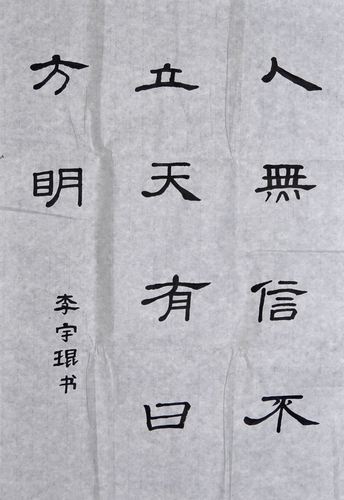 人無信不
立天有日
方明
李宇琨书